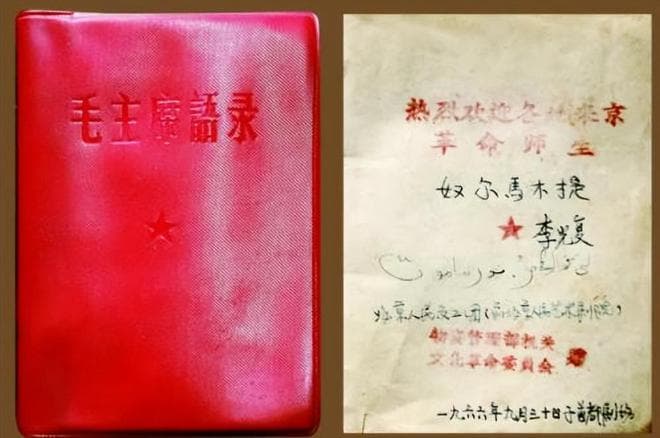 毛主席語录
热烈欢迎各地来京
革命师生
奴尔馬木提
李光复
北京人民文工团(前北京人民艺术剧院)
物资管理部机关
文化革命委员会
一九六六年九月三十日于首都剧场